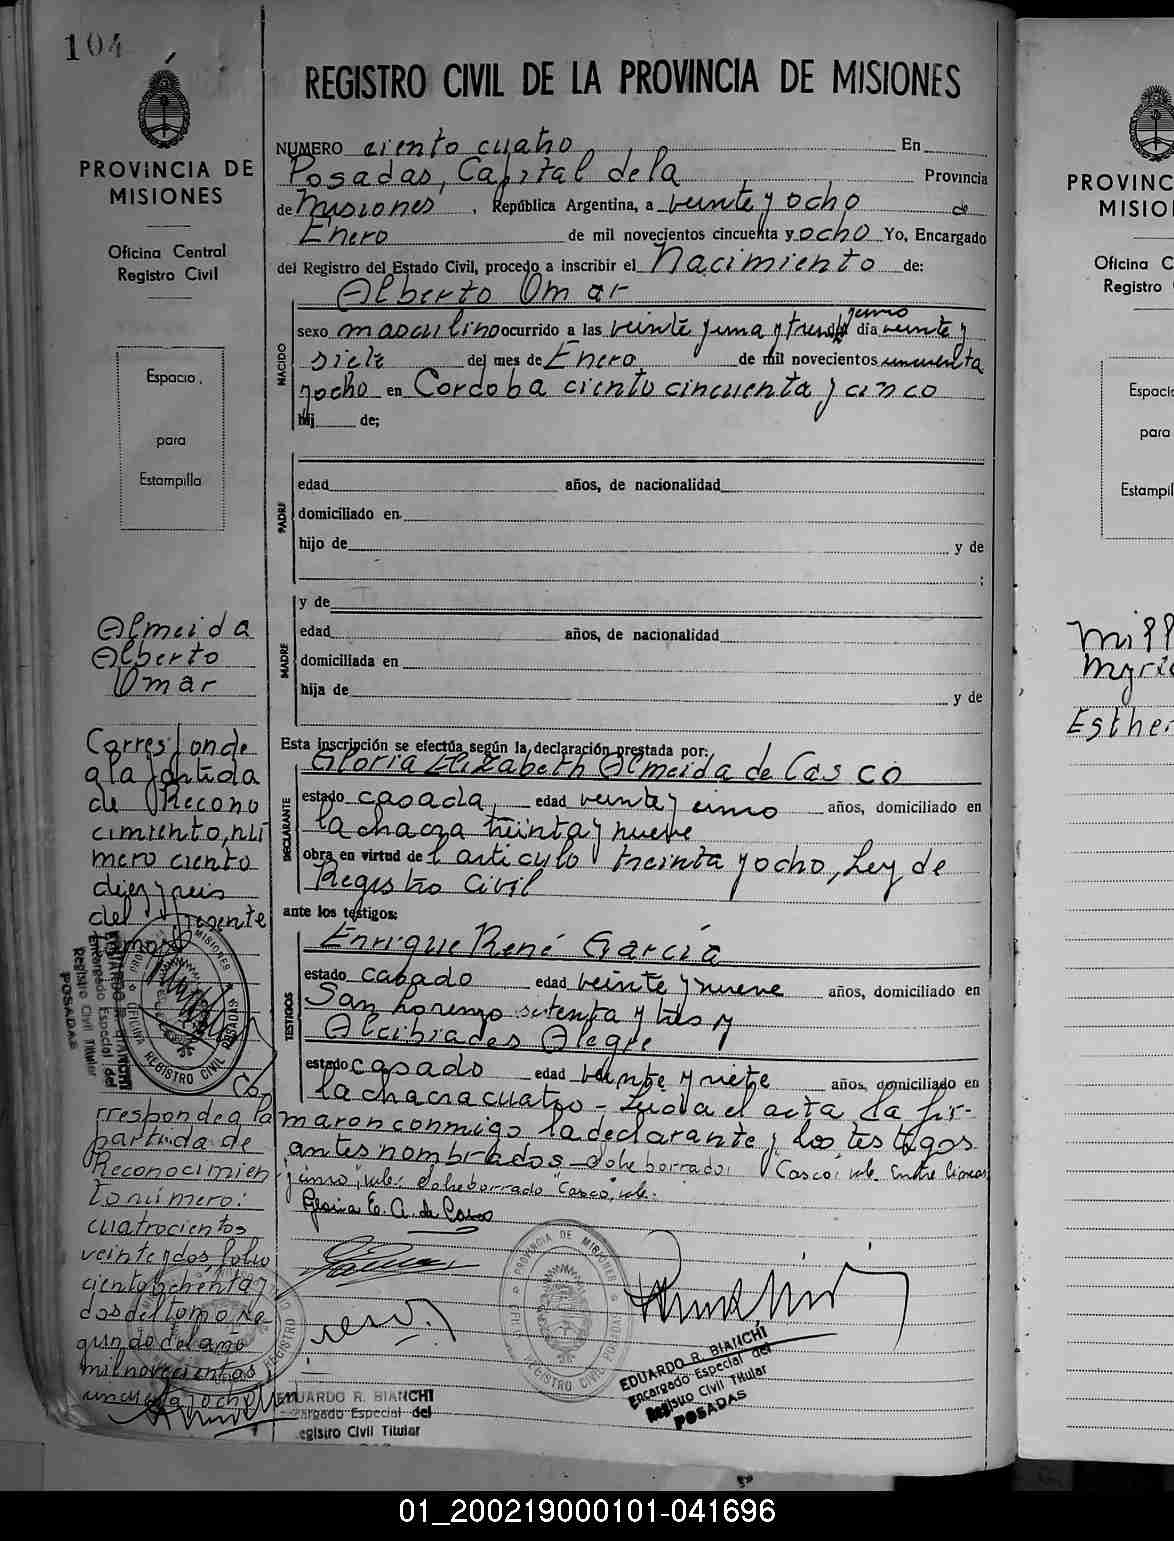 104
REGISTRO CIVIL DE LA PROVINCIA DE MISIONES
PROVINCIA DE
MISIONES
Oficina Central
Registro Civil
Espacio
para
Estampilla
NUMERO ciento cuatro En
Posadas, Capital de la Provincia
de Misiones, República Argentina, a veinte y ocho de
Enero de mil novecientos cincuenta y ocho Yo, Encargado
del Registro del Estado Civil, procedo a inscribir el Nacimiento de:
Alberto Omar
NACIDO
sexo masculino ocurrido a las veinte y una y treinta día veinte y
siete del mes de Enero de mil novecientos cincuenta
y ocho en Cordoba ciento cincuenta y cinco
hij de;
PADRE
edad años, de nacionalidad
domiciliado en
hijo de y de
;
MADRE
y de
edad años, de nacionalidad
domiciliada en
hija de y de
Esta inscripción se efectúa según la declaración prestada por:
Gloria Elizabeth Almeida de Casco
DECLARANTE
estado casada, edad veinte y cinco años, domiciliado en
la chacra treinta y nueve
obra en virtud del articulo treinta y ocho, Ley de
Registro Civil
ante los testigos:
TESTIGOS
Enrique René García
estado casado edad veinte y nueve años, domiciliado en
San Lorenzo setenta y tres y
Alcibiades Alegre
estado casado edad veinte y siete años, domiciliado en
la chacra cuatro - Leida el acta la fir-
maron conmigo la declarante y los testigos
antes nombrados - sobre borrado: Casco: vale. Entre lineas
junio, vale: sobre borrado "Casco", vale.
Gloria E. A. de Casco
Almeida
Alberto
Omar
Corresponde
a la partida
de Recono
cimiento, nú
mero ciento
diez y seis
del presente
tomo
EDUARDO R. BIANCHI
Encargado Especial del
Registro Civil Titular
POSADAS
PROVINCIA DE MISIONES
OFICINA REGISTRO CIVIL POSADAS
Co
rresponde a la
partida de
Reconocimien
to número:
cuatrocientos
veinte y dos, folio
ciento ochenta y
dos del tomo se
gundo del año
mil novecientos
cincuenta y ocho
EDUARDO R. BIANCHI
Encargado Especial del
Registro Civil Titular
PROVINCIA DE MISIONES
REGISTRO CIVIL POSADAS
EDUARDO R. BIANCHI
Encargado Especial del
Registro Civil Titular
POSADAS
PROVINC
MISIO
Oficina C
Registro
Espacio
para
Estampil
Mill
Myri
Esther
01_200219000101-041696